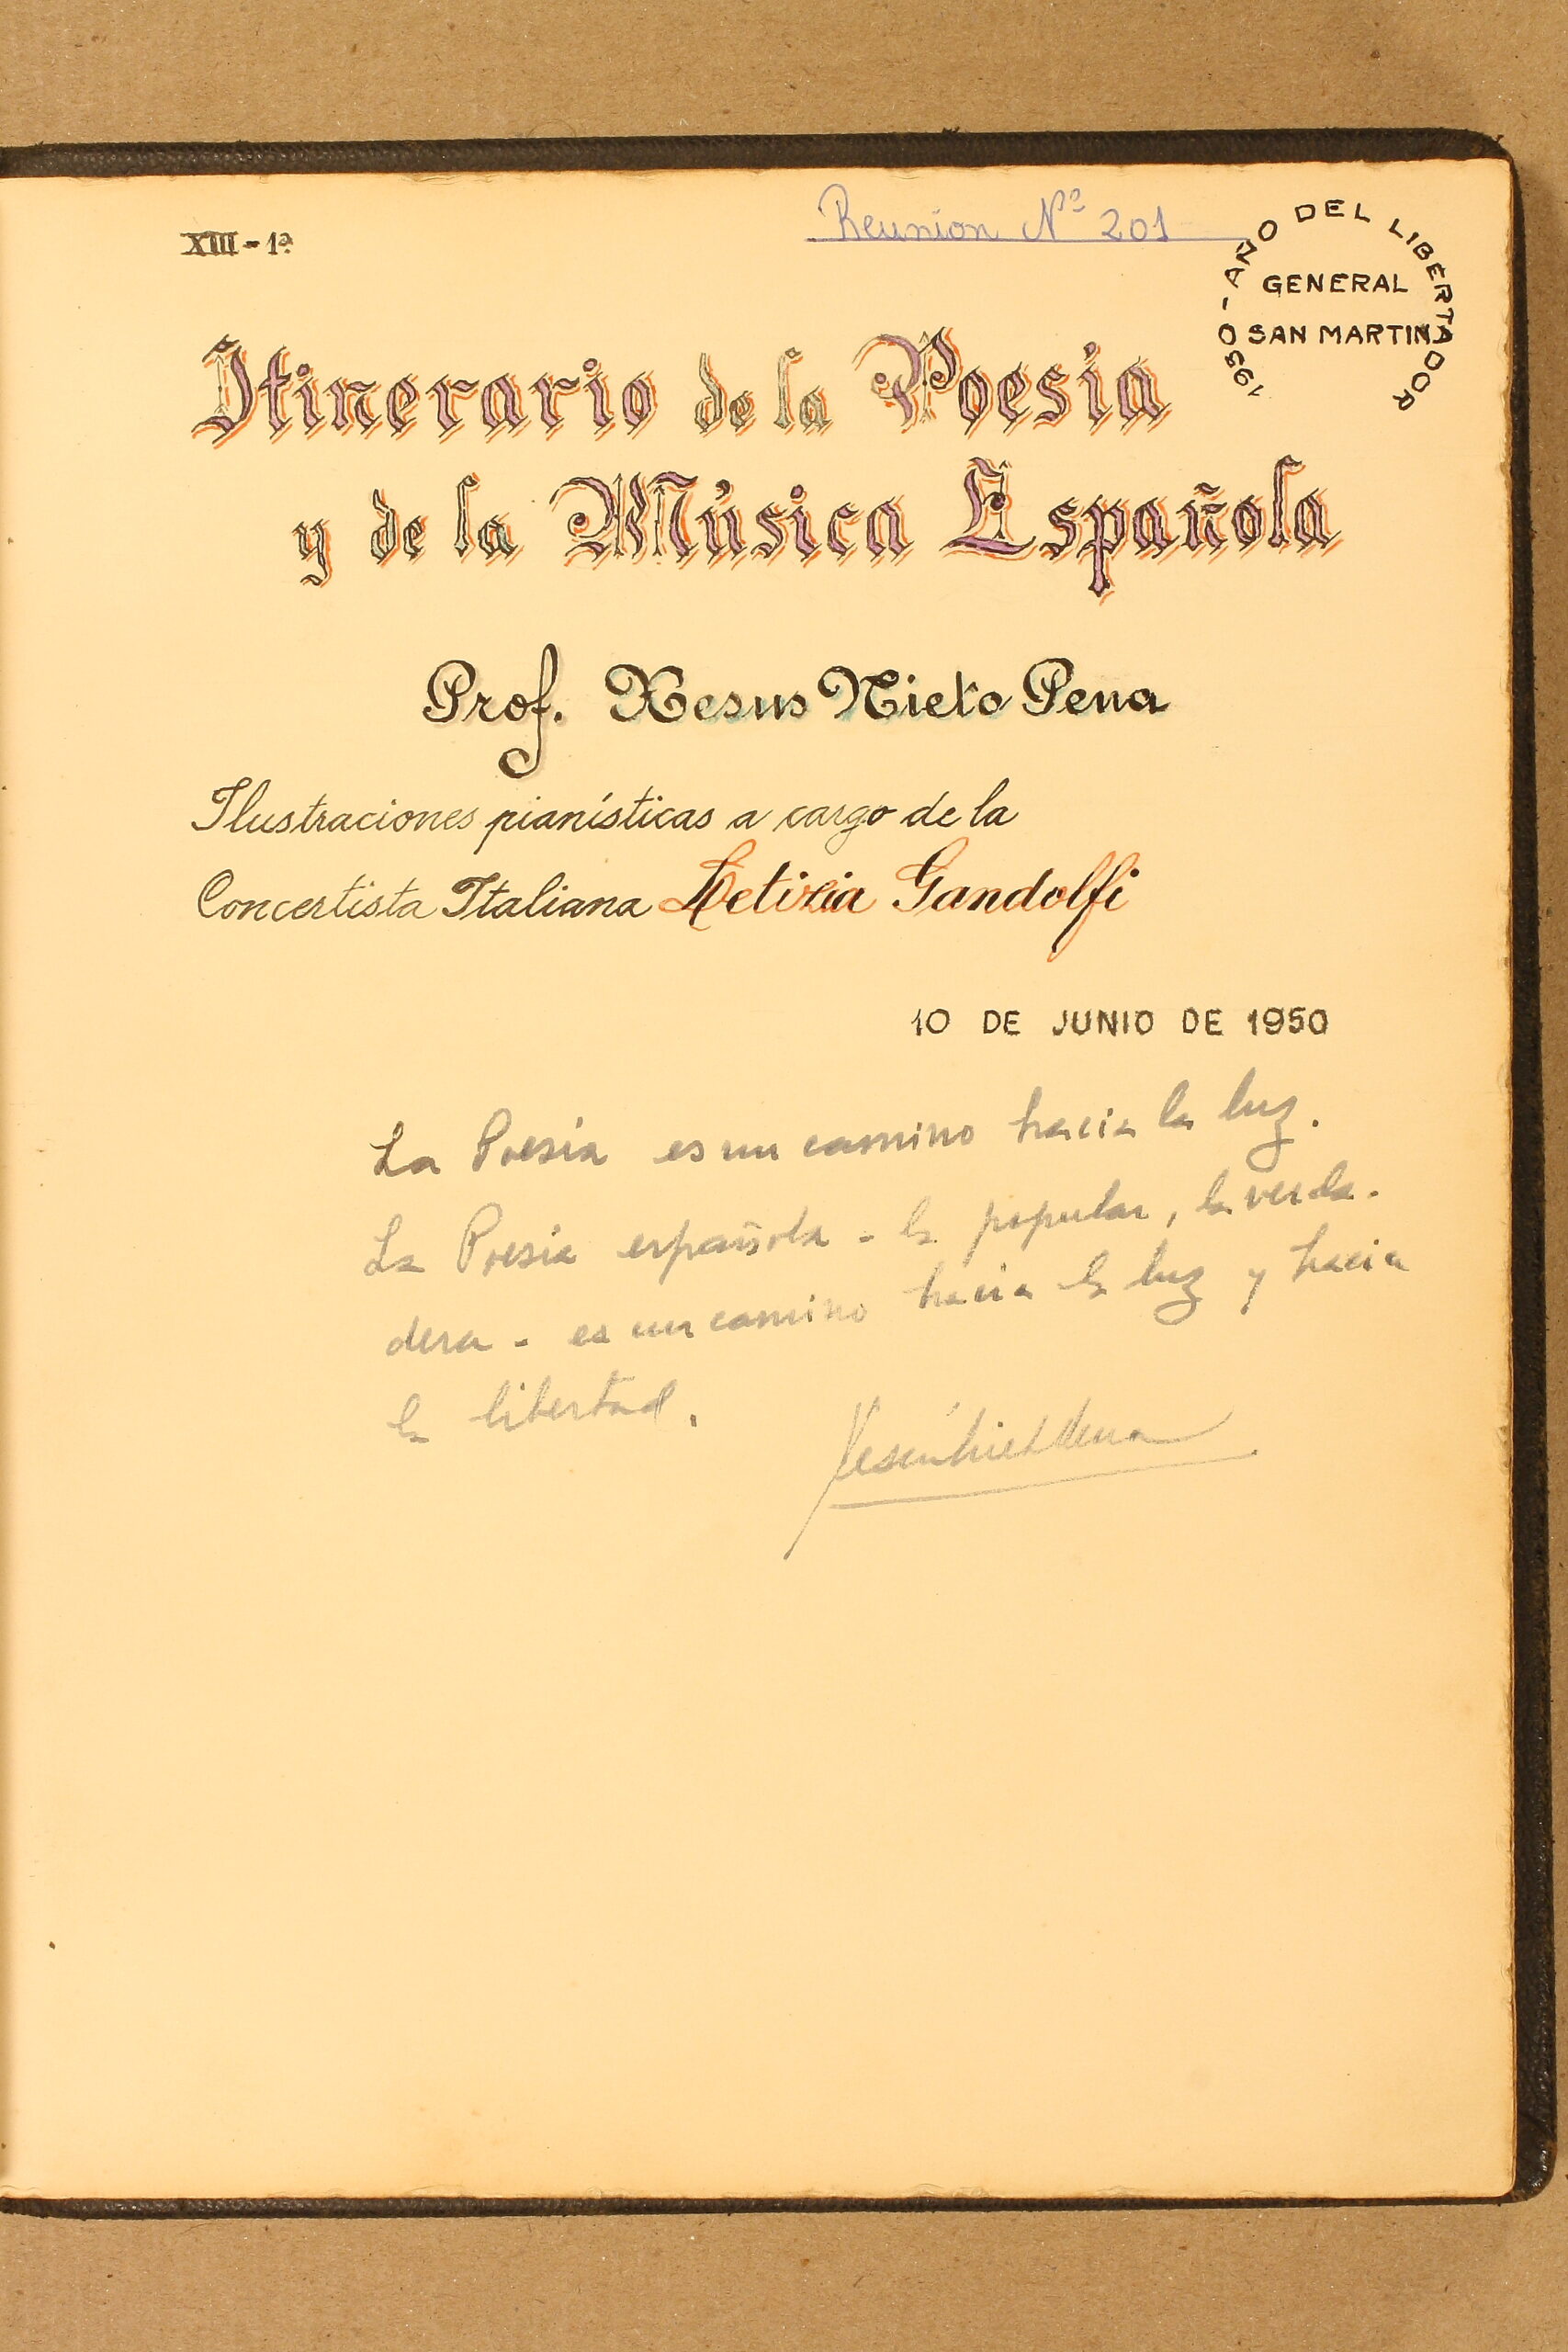 XIII - 1ª
Reunion Nº 201
1950 - AÑO DEL LIBERTADOR
GENERAL
SAN MARTIN
Itinerario de la Poesía
y de la Música Española
Prof. Xesus Nieto Pena
Ilustraciones pianísticas a cargo de la
Concertista Italiana Letizia Gandolfi
10 DE JUNIO DE 1950
La Poesía es un camino hacia la luz.
La Poesía española - la popular, la verda-
dera - es un camino hacia la luz y hacia
la libertad.